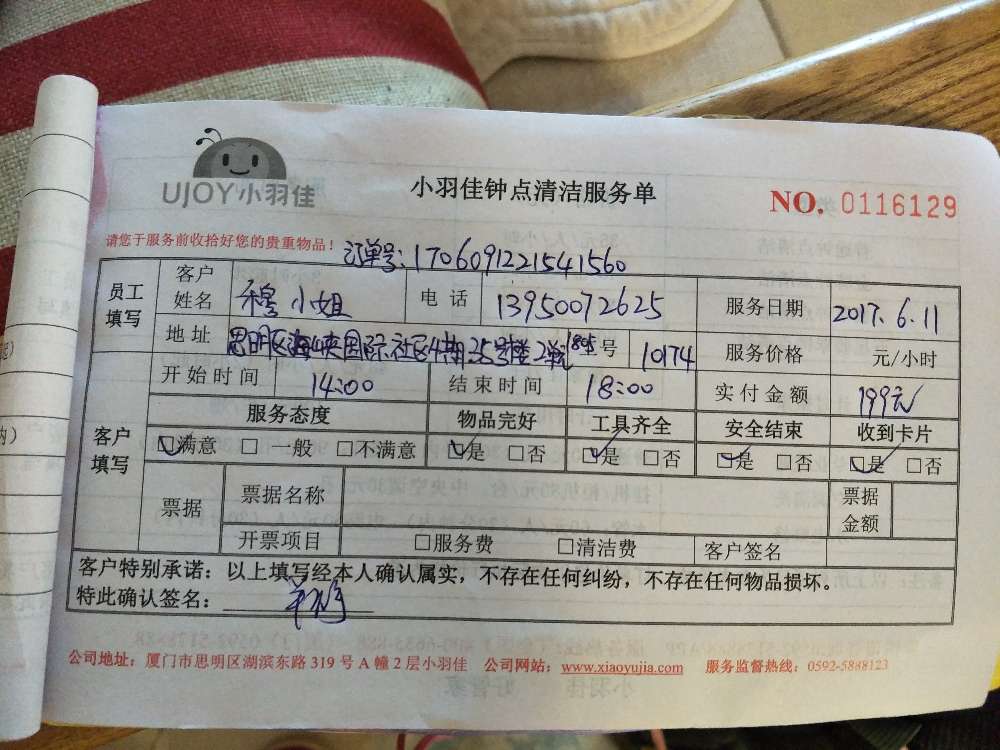 UJOY小羽佳
小羽佳钟点清洁服务单
NO. 0116129
请您于服务前收拾好您的贵重物品!
订单号:1706091221541560
员工填写 客户姓名 穆小姐 电话 13950072625 服务日期 2017.6.11
地址 思明区海峡国际社区4期25号楼2单元1805号 10174 服务价格 元/小时
客户填写 开始时间 14:00 结束时间 18:00 实付金额 199元
服务态度 物品完好 工具齐全 安全结束 收到卡片
满意 □一般 □不满意 是 □否 是 □否 是 □否 是 □否
票据 票据名称 票据金额
开票项目 □服务费 □清洁费 客户签名
客户特别承诺:以上填写经本人确认属实,不存在任何纠纷,不存在任何物品损坏。
特此确认签名:
公司地址:厦门市思明区湖滨东路319号A幢2层小羽佳 公司网站:www.xiaoyujia.com 服务监督热线:0592-5888123